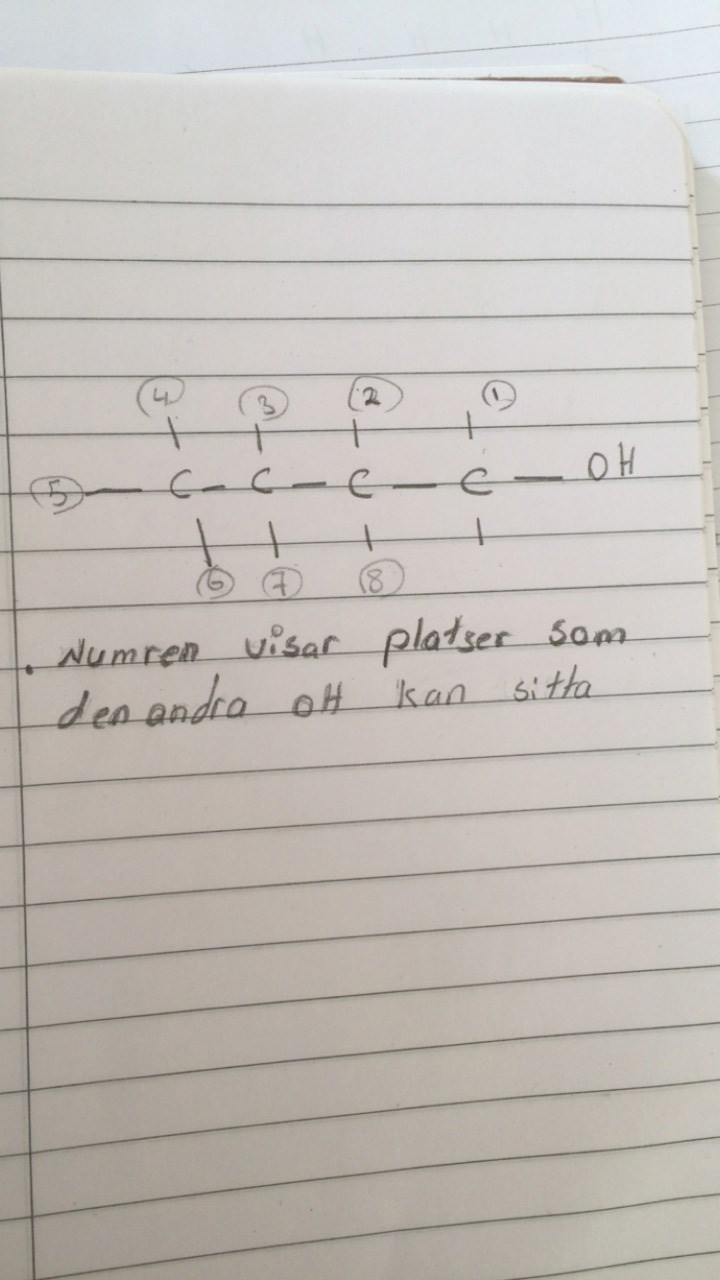 ④ ③ ② ①
⑤ — C — C — C — C — OH
⑥ ⑦ ⑧
. Numren visar platser som
den andra OH kan sitta